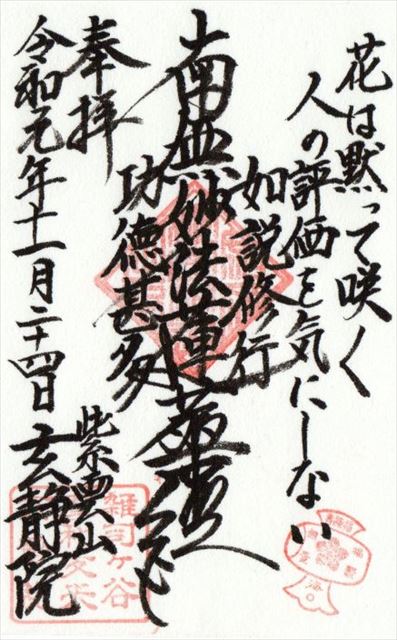 花は黙って咲く
人の評価を気にしない
如説修行
南無妙法蓮華経
功徳甚多
奉拝
令和元年十一月二十四日
紫雲山
玄静院
雑司ヶ谷